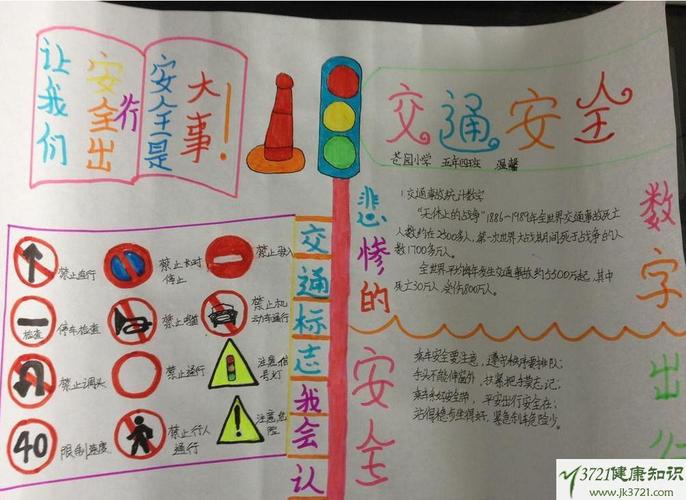 让我们
安全出
行
安全是
大事!
交通安全
苍园小学 五年四班 温馨
悲惨的
数字
1.交通事故统计数字
"无休止的战争"1886-1989年全世界交通事故死亡
人数约在2300多人,第一次世界大战期间死于战争的人
数1700多万人。
全世界平均每年发生交通事故约3300万起,其中
死亡30万人,受伤800万人。
交通标志我会认
禁止直行
禁止长时
停止
禁止驶入
检查
停车检查
禁止鸣笛
禁止机
动车通行
禁止调头
禁止通行
注意信
号灯
40
限制速度
禁止行人
通行
注意危
险
安全
出行
乘车安全要注意,遵守秩序要排队;
手头不能伸窗外,扶紧把手莫忘记;
平安出行安全在;
站得稳
3721健康知识
www.jk3721.com